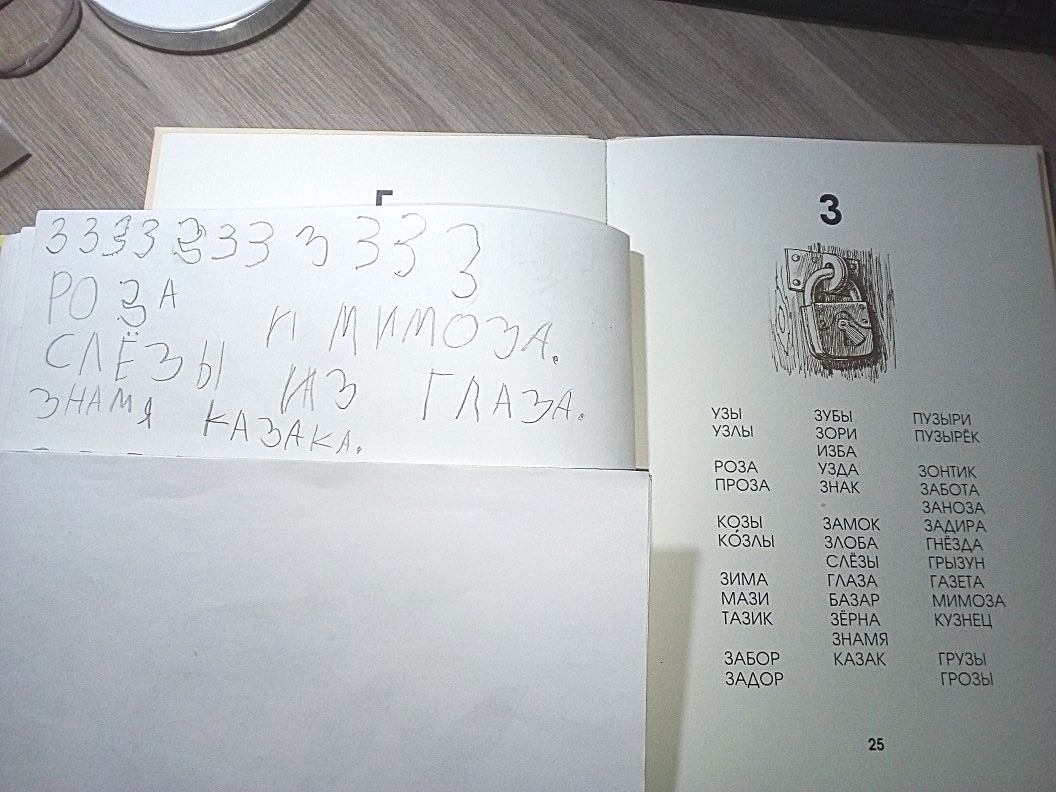 Г
З З З З З З З З З З З
РОЗА И МИМОЗА.
СЛЁЗЫ ИЗ ГЛАЗА.
ЗНАМЯ КАЗАКА.
З
УЗЫ
УЗЛЫ
РОЗА
ПРОЗА
КОЗЫ
КО́ЗЛЫ
ЗИМА
МАЗИ
ТАЗИК
ЗАБОР
ЗАДОР
ЗУБЫ
ЗОРИ
ИЗБА
УЗДА
ЗНАК
ЗАМОК
ЗЛОБА
СЛЁЗЫ
ГЛАЗА
БАЗАР
ЗЁРНА
ЗНАМЯ
КАЗАК
ПУЗЫРИ
ПУЗЫРЁК
ЗОНТИК
ЗАБОТА
ЗАНОЗА
ЗАДИРА
ГНЁЗДА
ГРЫЗУН
ГАЗЕТА
МИМОЗА
КУЗНЕЦ
ГРУЗЫ
ГРОЗЫ
25